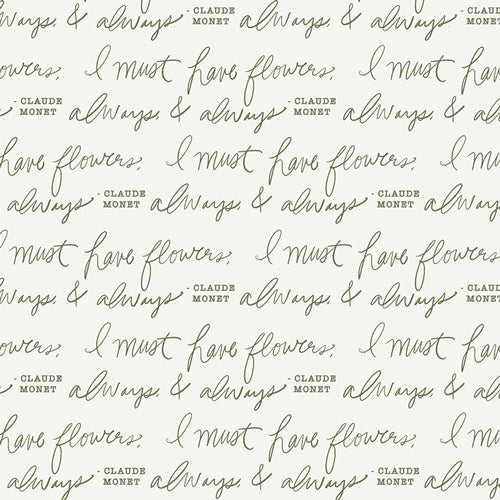 always, & always - CLAUDE always, & always - CLAUDE
MONET MONET
flowers, I must have flowers, I must have
- CLAUDE always, & always - CLAUDE always, &
MONET MONET
have flowers, I must have flowers, I must
always - CLAUDE always, & always - CLAUDE always
MONET MONET
I must have flowers, I must have flowers,
always, & always - CLAUDE always, & always - CLAUDE
MONET MONET
flowers, I must have flowers, I must have
- CLAUDE always, & always - CLAUDE always, &
MONET MONET
have flowers, I must have flowers, I must
always - CLAUDE always, & always - CLAUDE always
MONET MONET